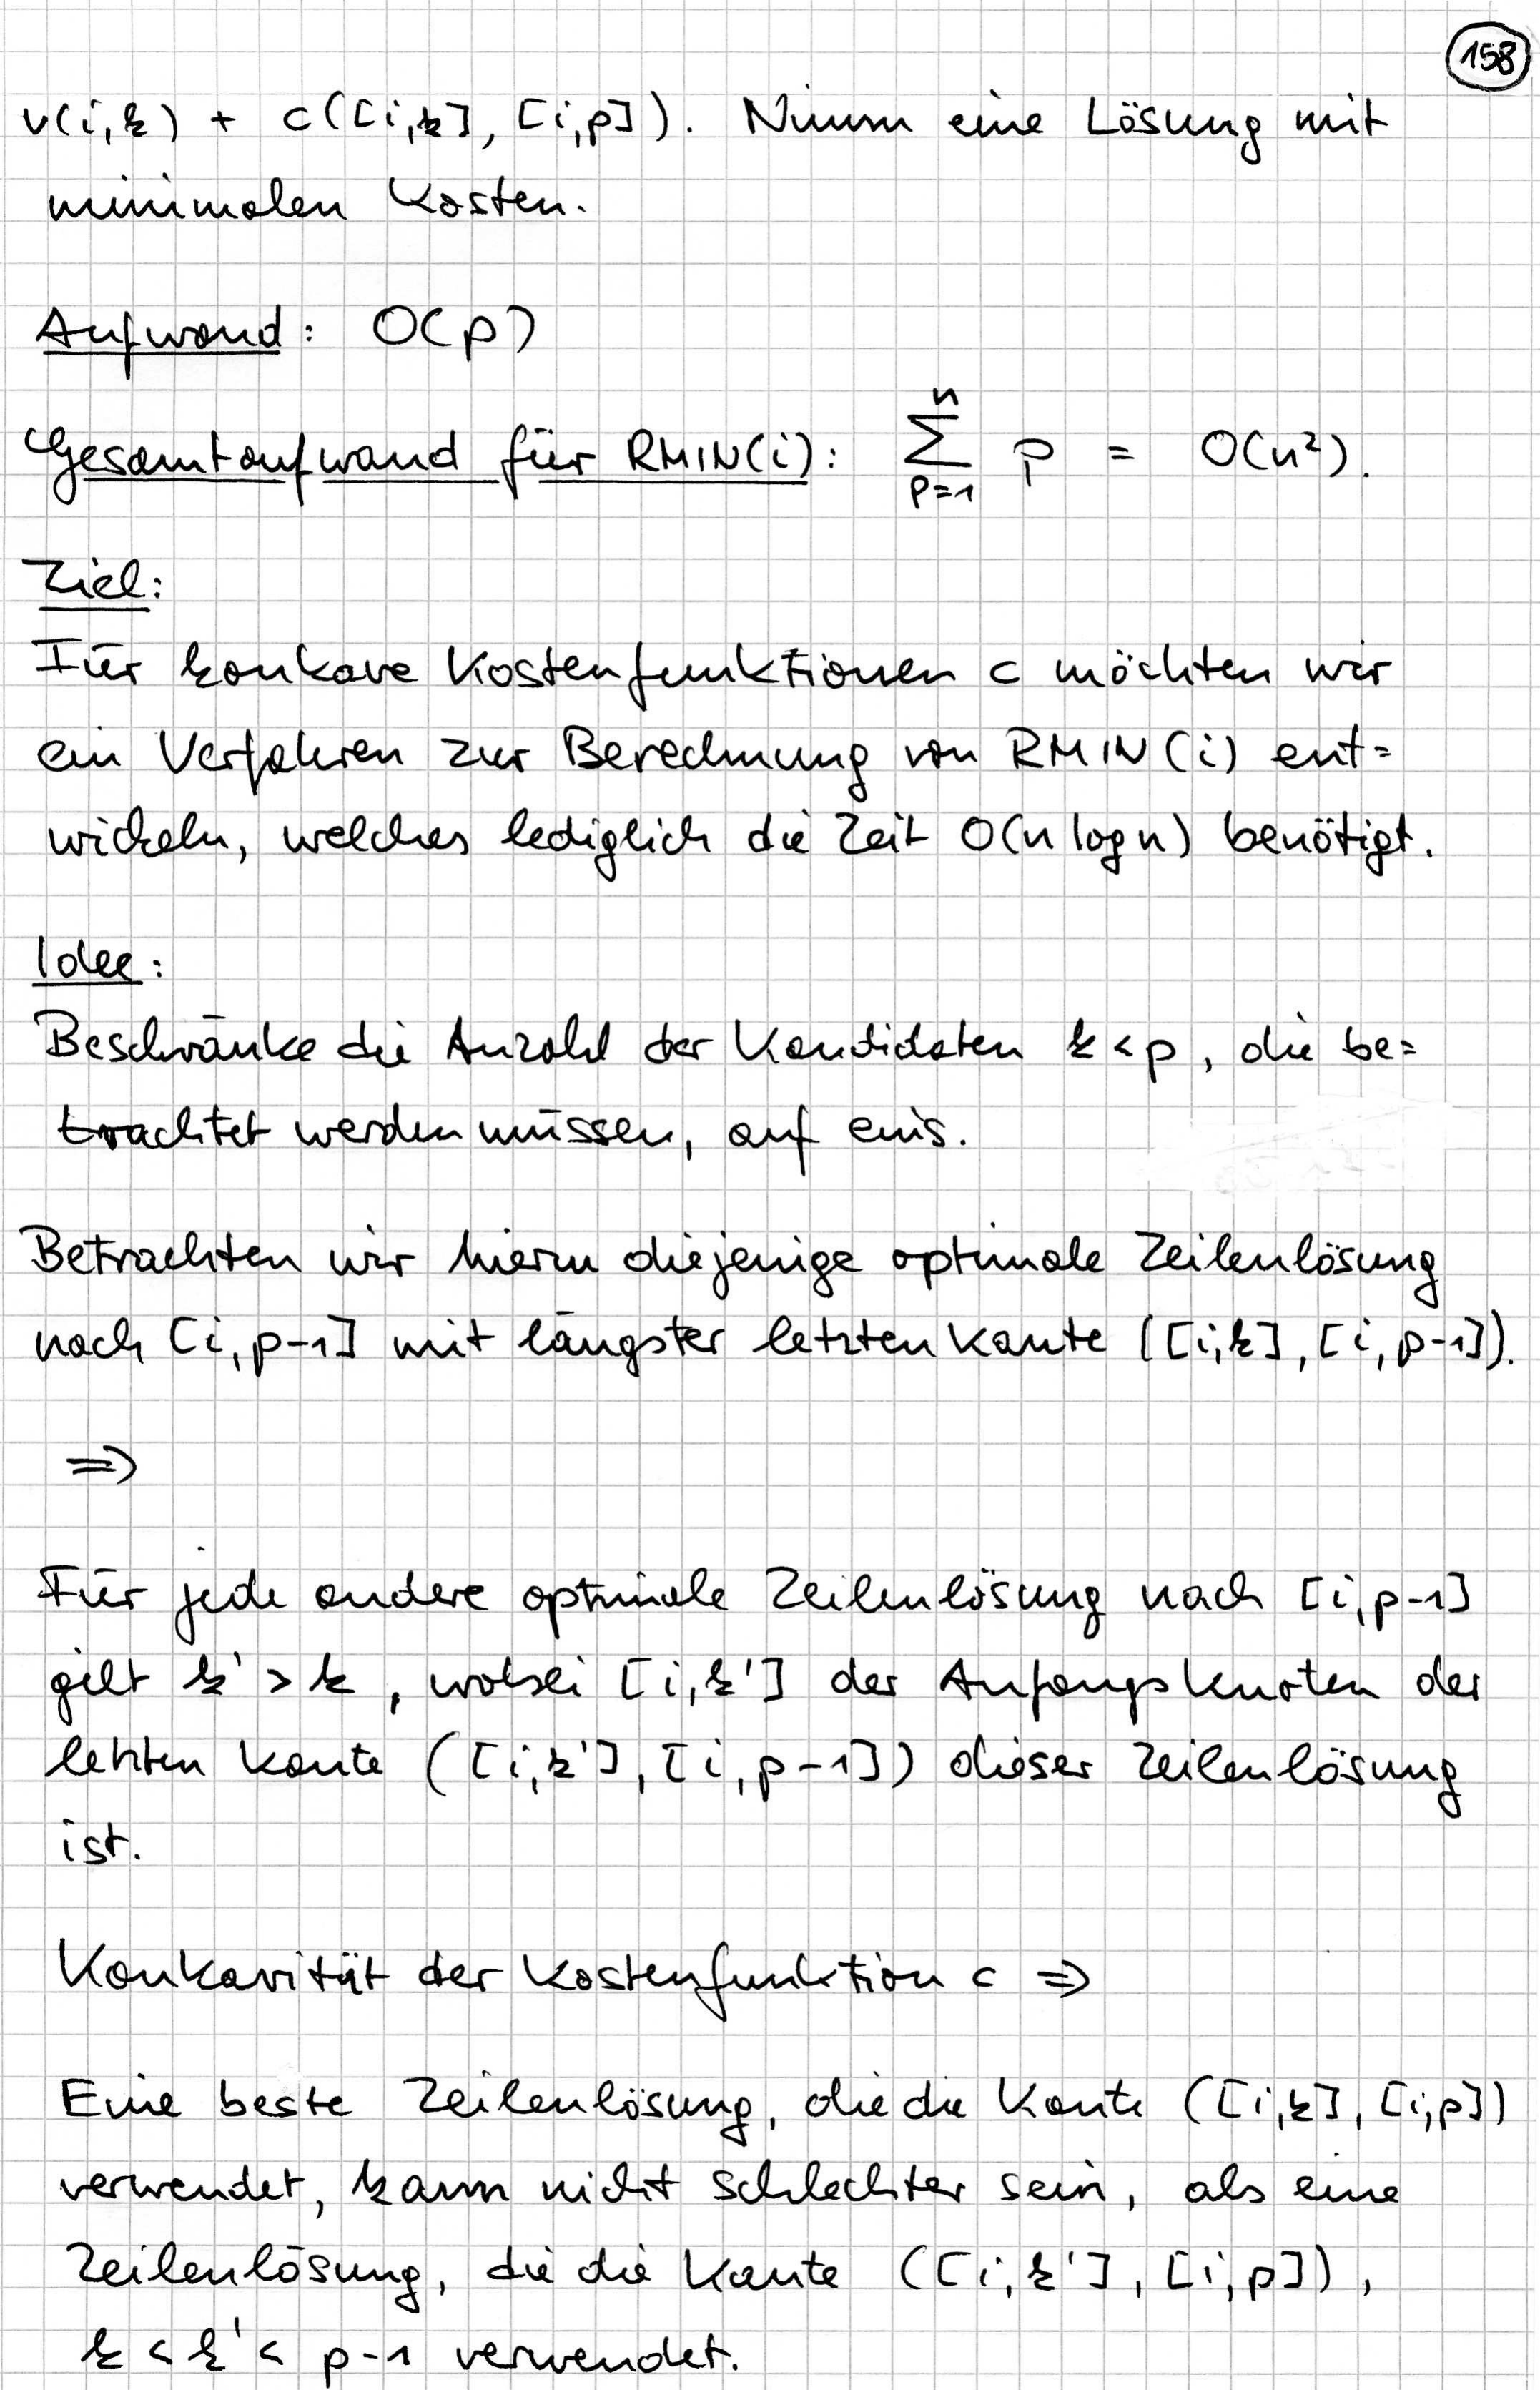 158
v(i,k) + c([i,k], [i,p]). Nimm eine Lösung mit
minimalen Kosten.
Aufwand: O(p)
Gesamtaufwand für RMIN(i): ∑_{p=1}^{n} p = O(n²).
Ziel:
Für konkave Kostenfunktionen c möchten wir
ein Verfahren zur Berechnung von RMIN(i) ent=
wickeln, welches lediglich die Zeit O(n log n) benötigt.
Idee:
Beschränke die Anzahl der Kandidaten k < p, die be=
trachtet werden müssen, auf eins.
Betrachten wir hierzu diejenige optimale Zeilenlösung
nach [i,p-1] mit längster letzten Kante ([i,k], [i,p-1]).
⇒
Für jede andere optimale Zeilenlösung nach [i,p-1]
gilt k' > k, wobei [i,k'] der Anfangsknoten der
letzten Kante ([i,k'], [i,p-1]) dieser Zeilenlösung
ist.
Konkavität der Kostenfunktion c ⇒
Eine beste Zeilenlösung, die die Kante ([i,k], [i,p])
verwendet, kann nicht schlechter sein, als eine
Zeilenlösung, die die Kante ([i,k'], [i,p]),
k < k' < p-1 verwendet.